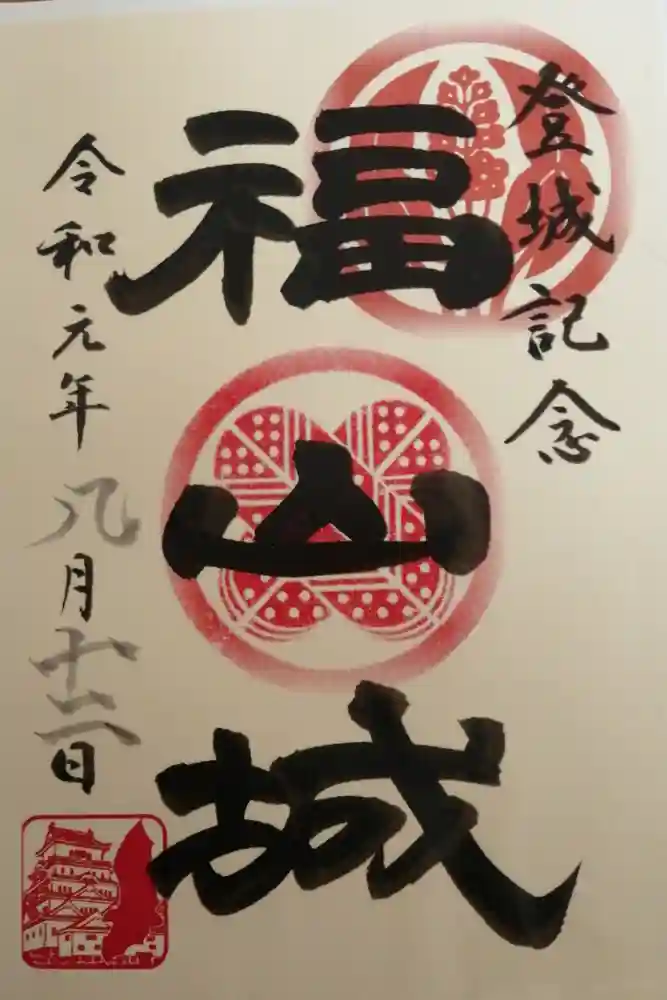 登城記念
福山城
令和元年九月十 日